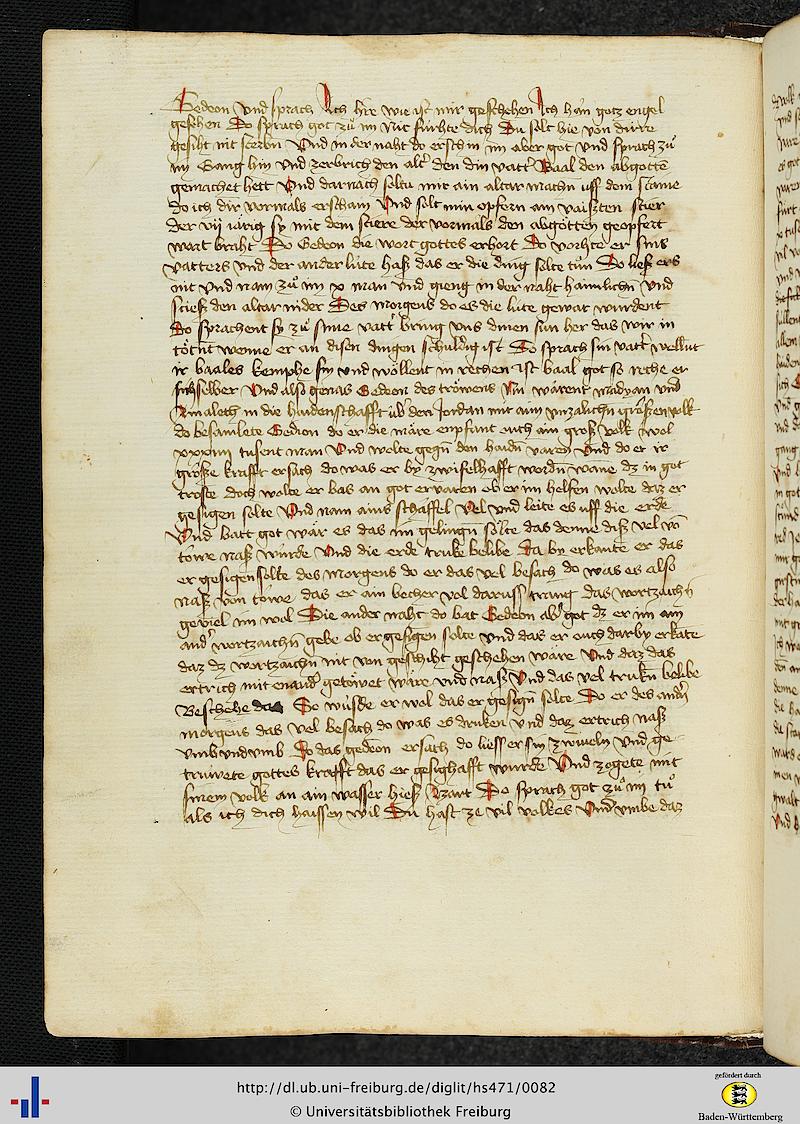 Gedeon vnd sprach Ach hre wie ist mir geschehen Ich han gotz engel
gesehen Do sprach got zů im Nit fürhte dich Du solt hie von dirre
gesiht nit sterbn Vnd in der naht do erschin im aber got vnd sprach zů
im Gang hin vnd zerbrich den altr den din vattr Baal den abgotte
gemachet hett Vnd darnach soltu mir ain altar machn vff dem staine
do ich dir vormals erschain Vnd solt min opfern ain vaiszten stier
der vij iärig sy mit dem stiere der vormals den abgötten geopfert
wart braht Do Gedeon die wort gottes erhort Do vorhte er sins
vatters vnd der ander lüte hasz das er die ding solte tůn Do liesz ers
nit vnd nam zů im x man vnd gieng in der naht haimlichn vnd
stiesz den altar nider Des morgens do es die lüte gewar wurdent
Do sprachent sy zů sinē vattr bring vns dinen sun her das wir in
tötnt wenne er an disen dingen schuldig ist Do sprach sin vattr wellent
ir baales kemphe sin vnd wöllent in rechen ist baal got so reche er
sich selber Vnd also genas Gedeon des tröwens Nu wärent madyan vnd
Amalech in die haidenschafft übr den Jordan mit aim vnzalichn größen volk
do besamlete Gedion do er die märe enpfant ouch ain groß volk wol
xxxiiij tusent man Vnd wolte gegn den haidn varen Vnd do er ir
große krafft ersach do was er by zwifelhafft wordn wane dz in got
troste doch wolte er bas an got ervaren ob er im helfen wolte daz er
gesigen solte Vnd nam ains schaffel vel vnd leite es vff die erde
Vnd batt got wär es das im gelingn sölte das denne disz vel võ
towe nasz wurde Vnd die erde truke belibe da by erkante er das
er gesigen solte des morgens do er das vel besach do was es also
nasz von towe das er ain becher vol daruss trang das wortzaichn
geviel im wol Die ander naht do bat Gedeon abr got dz er im ain
andr wortzaichn gebe ob er gesigen solte vnd das er ouch darby erkäte
daz dz wortzaichn nit von geschiht geschehen wäre Vnd daz das
ertrich mit enandr getöwet wäre vnd nasz Vnd das vel trukn belibe
Beschehe das So wüsde er wol das er gesign solte Do er des andn
morgens das vel besach do was es druken vnd daz ertrich nasz
vmb vnd vmb Do das gedeon ersach do liess er sin zwiueln vnd ge-
truwete gottes krafft das er gesighafft wurde Vnd zogete mit
sinem volk an ain wasser hiesz Azart Do sprach got zů im tů
als ich dich haissen wil Du hast ze vil volkes Vnd vmbe daz
http://dl.ub.uni-freiburg.de/diglit/hs471/0082
© Universitätsbibliothek Freiburg
gefördert durch
Baden-Württemberg